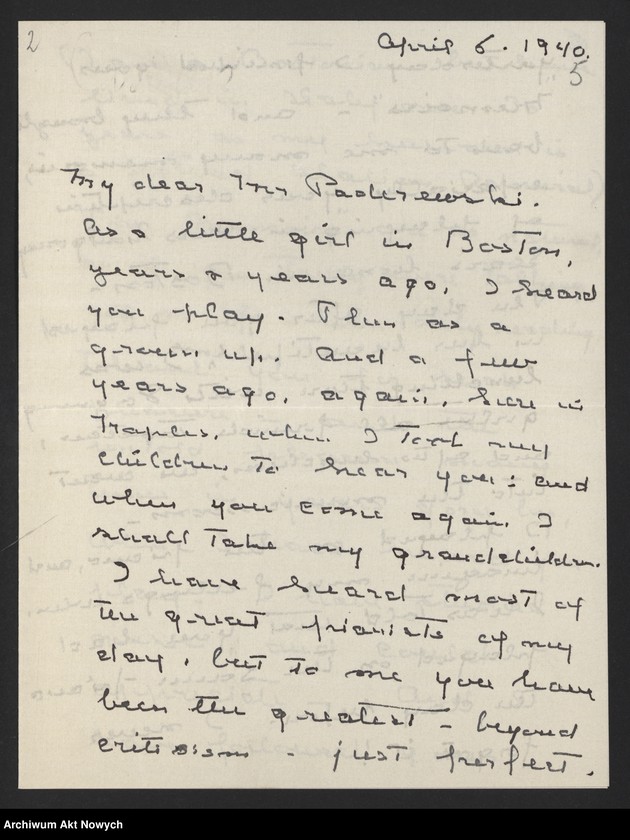 2
April 6. 1940.
5
My dear Mr Paderewski.
As a little girl in Boston,
years & years ago, I heard
you play. Then as a
grown up. And a few
years ago, again, here in
Naples, when I took my
children to hear you: and
when you come again, I
shall take my grandchildren.
I have heard most of
the great pianists of my
day, but to me you have
been the greatest - beyond
criticism - just perfect.
Archiwum Akt Nowych